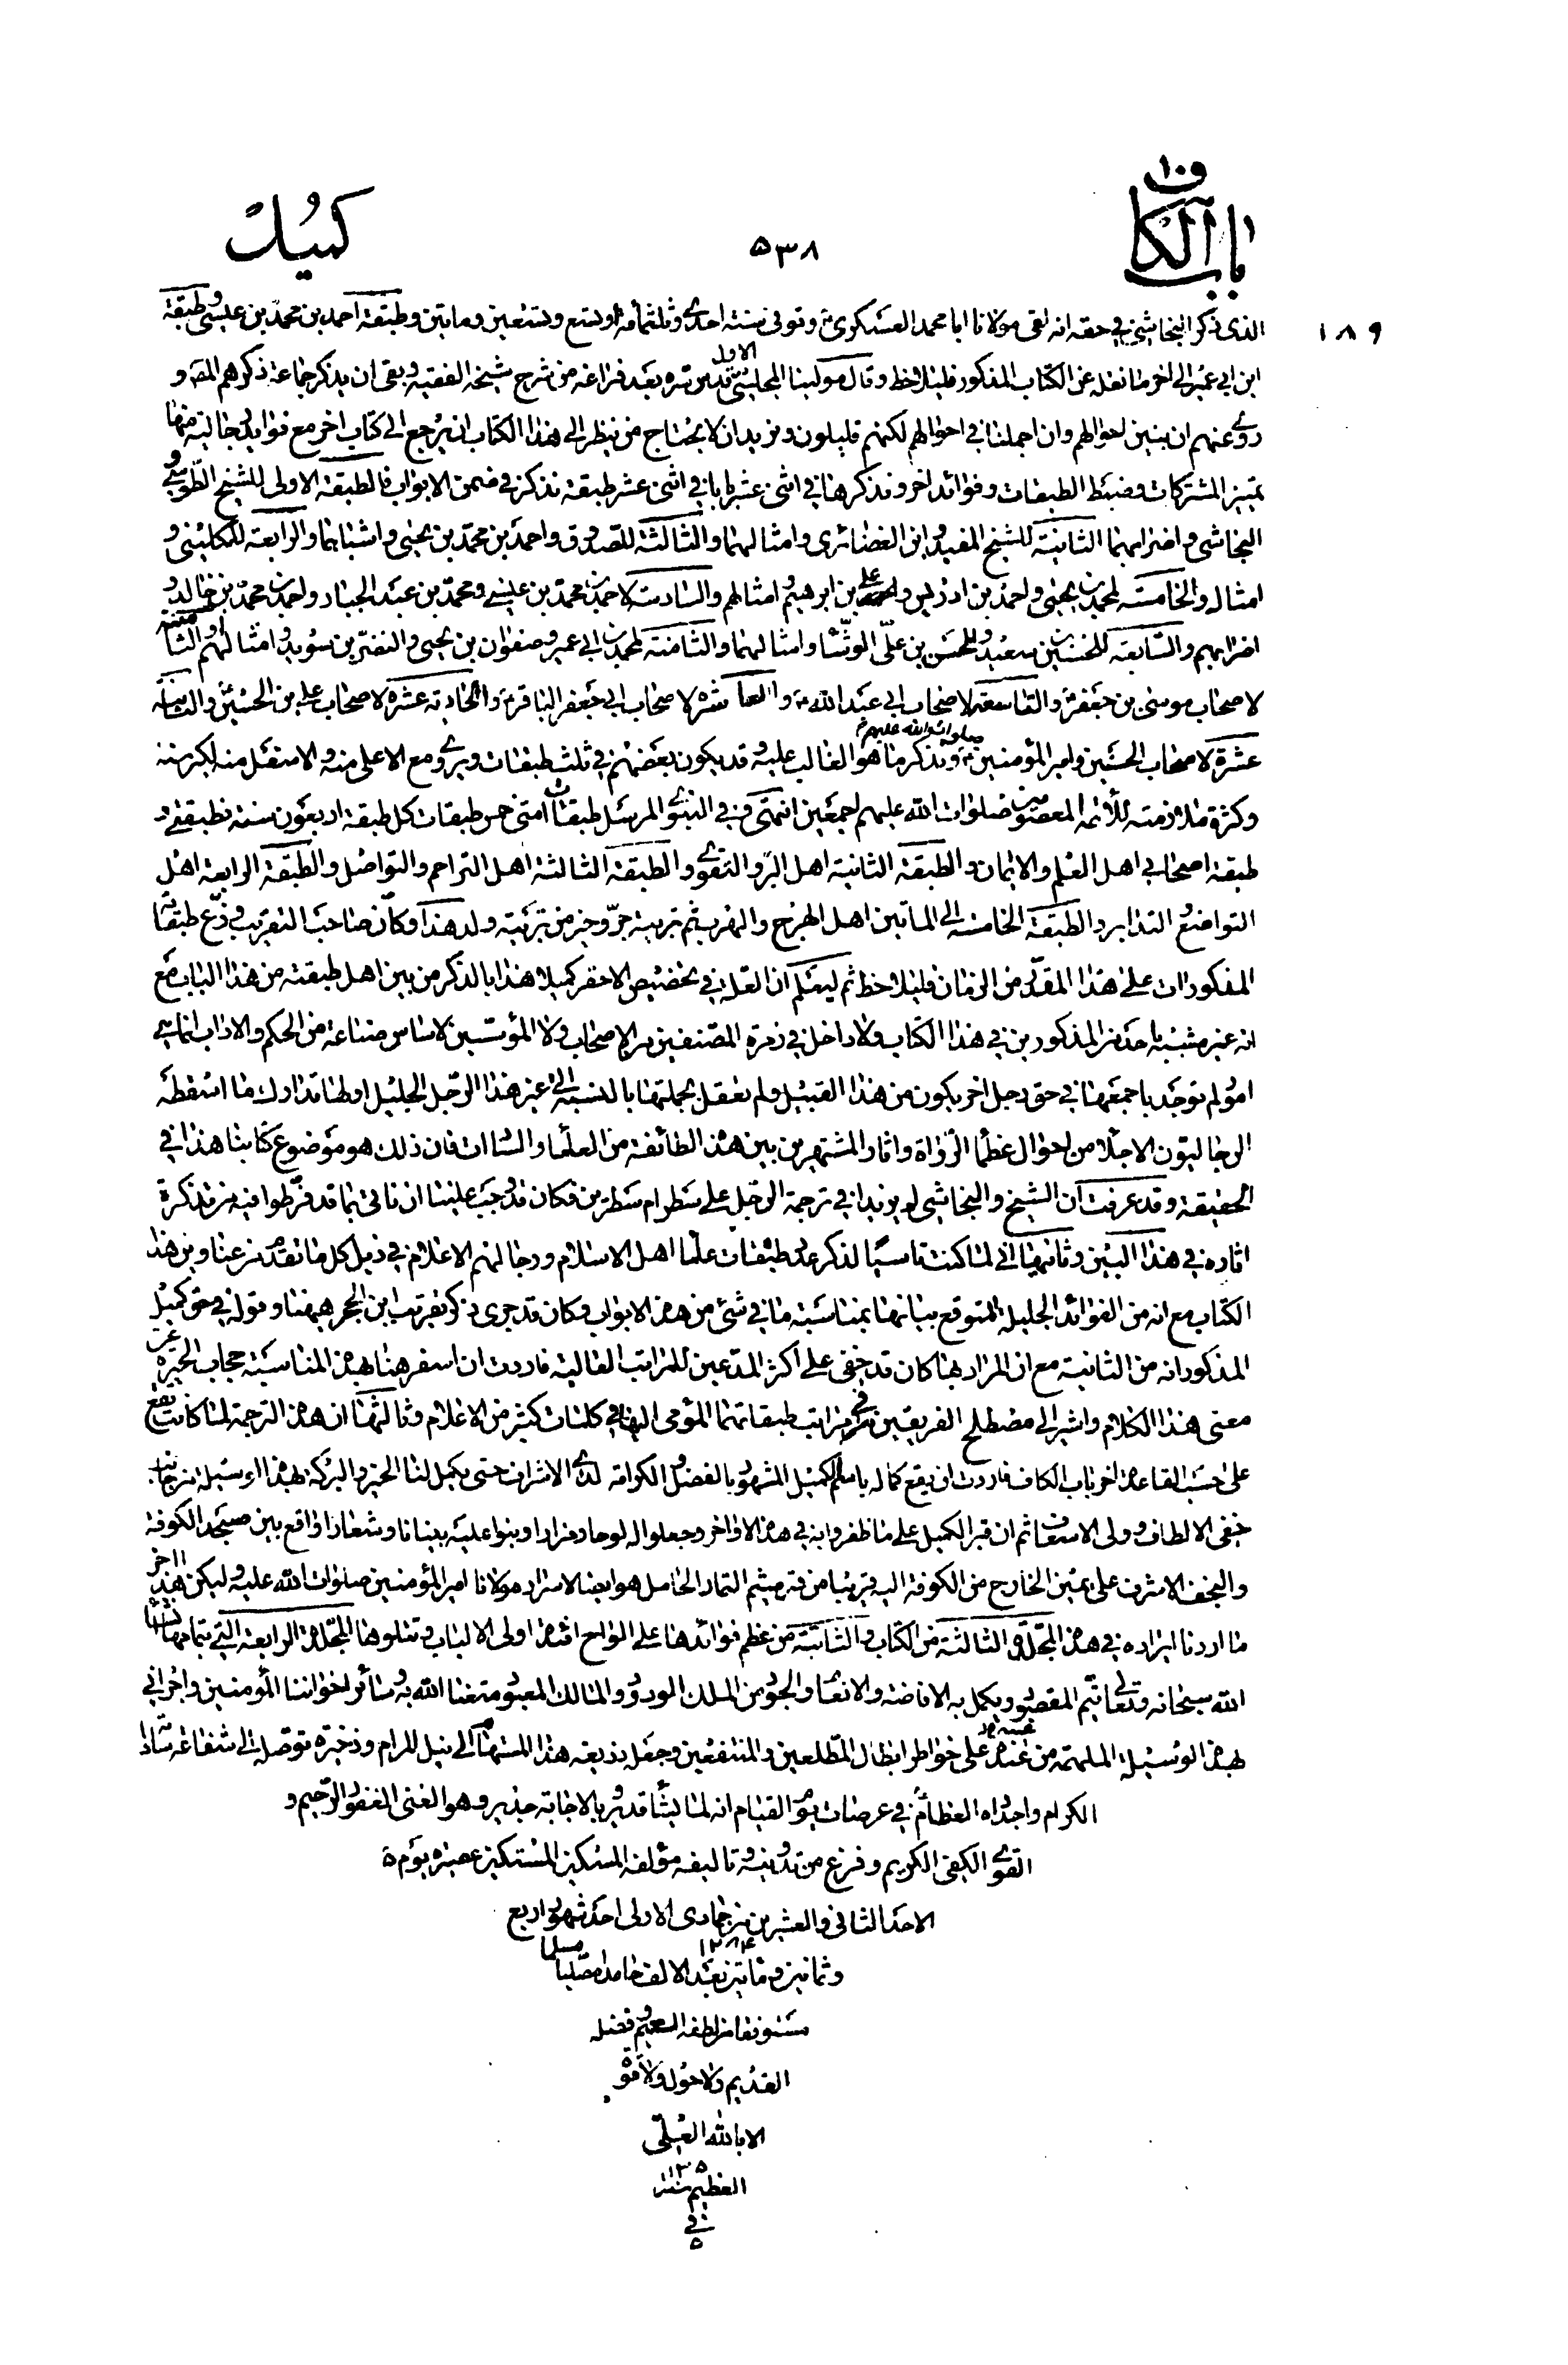 باب الكاف
٥٣٨
كميل
١٨٩
الذى ذكر النجاشى فى حقه انه لقى مولانا ابا محمد العسكرى ع وتوفى سنته احدى وثلثمأة او تسع وتسعين ومايتين وطبقة احمد بن محمد بن عيسى وطبقة
ابن ابى عمير الى اخر ما نقله عن الكتاب المذكور فليلاحظ وقال مولينا المجلسى الاول قدس سره بعد فراغه من شرح مشيخه الفقيه وبقى ان يذكر جماعة ذكرهم المص و
روى عنهم ان نبين احوالهم وان اجملنا فى احوالهم لكنهم قليلون ونريد ان لا يحتاج من ينظر الى هذا الكتاب ان يرجع الى كتاب اخر مع فوايد رجالية منها
تميز المشتركات وضبط الطبقات وفوائد اخر ونذكرها فى اثنى عشر بابا فى اثنى عشر طبقة نذكر فى ضمن الابواب فالطبقة الاولى للشيخ الطوسى و
النجاشى واضرابهما الثانية للشيخ المفيد وابن الغضائرى وامثالهما والثالثة للصدوق واحمد بن محمد بن يحيى واشباههما والرابعة للكلينى و
امثاله والخامسة لمحمد بن يحيى واحمد بن ادريس وعلى بن ابرهيم وامثالهم والسادسة لاحمد بن محمد بن عيسى ومحمد بن عبد الجبار واحمد بن محمد بن خالد و
اضرابهم والسابعة للحسين بن سعيد وللحسن بن على الوشا وامثالهما والثامنة لمحمد بن ابى عمير وصفوان بن يحيى والنضر بن سويد وامثالهم
لاصحاب موسى بن جعفر ع والتاسعة لاصحاب ابى عبد الله ع والعاشرة لاصحاب ابى جعفر الباقر ع والحادية عشرة لاصحاب على بن الحسين ع والثانية
عشرة لاصحاب الحسين وامير المؤمنين صلوات الله عليهم ونذكر ما هو الغالب عليه وقد يكون بعضهم فى ثلث طبقات ويروى مع الاعلى منه والاسفل منه لكبر سنه
وكثرة ملازمته للأئمة المعصومين صلوات الله عليهم اجمعين انتهى وفى النبوى المرسل طبقات امتى خمس طبقات كل طبقة اربعون سنة فطبقتى و
طبقة اصحابى اهل العلم والايمان والطبقة الثانية اهل البر والتقوى والطبقة الثالثة اهل التراحم والتواصل والطبقة الرابعة اهل
التواضع التدابر والطبقة الخامسة الى المأتين اهل الهرج والهرب ثم تربية جرو خير من تربية ولد هذا وكان صاحب التقريب وزع طبقاته
المذكورات على هذا المقدار من الزمان فليلاحظ ثم ليعلم ان العلة فى تخصيص الاحقر كميلا هذا بالذكر من بين اهل طبقته من هذا الباب مع
انه غير مشتبه باحد من المذكورين فى هذا الكتاب ولا داخل فى زمرة المصنفين من الاصحاب ولا المؤسسين لاساس صناعة من الحكم والاداب انما هى
امور لم توجد باجمعها فى حق رجل اخر يكون من هذا القبيل ولم تعقل بجملتها بالنسبة الى غير هذا الرجل الجليل اولها تدارك ما اسقطه
الرجاليون الاجلاء من احوال عظماء الرواة واثار المشتهرين من بين هذه الطائفة من العلماء والسادات فان ذلك هو موضوع كتابنا هذا فى
الحقيقة وقد عرفت ان الشيخ والنجاشى لم يزيدا فى ترجمة الرجل على سطر ام سطرين فكان قد وجب علينا ان ناتى بما قد فرطوا فيه من تذكرة
اثاره فى هذا البين وثانيها انى لما كنت ناسيا لذكر عدد طبقات علماء اهل الاسلام ورجالهم الاعلام فى ذيل كل ما تقدم من عناوين هذا
الكتاب مع انه من الفوائد الجليلة المتوقع بيانها بمناسبة ما فى شئ من هذه الابواب وكان قد جرى ذكر تقريب ابن الحجر هيهنا وقوله فى حق كميل
المذكور انه من الثانية مع ان المراد بها كان قد خفى على اكثر المدعين للمراتب العالية فاردت ان اسفر هنا بهذه المناسبة حجاب الحيرة عن
معنى هذا الكلام واشير الى مصطلح الفريقين فى مراتب طبقاتهما المؤمى اليها فى كلمات كثير من الاعلام وثالثها ان هذه الترجمة لما كانت تقع
على حسب القاعدة اخر باب الكاف فاردت ان يقع كماله باسم الكميل المشهور بالفضل والكرامة لدى الاشراف حتى يكمل لنا الخير والبركة بهذا الوسيلة من جانب
خفى الالطاف وولى الاسعاف ثم ان قبر الكميل على ما ظفروا به فى هذه الاواخر وجعلوا له لوحا ومزارا وبنوا عليه بنيانا وشعارا واقع بين مسجد الكوفة
والنجف الاشرف على يمين الخارج من الكوفة اليه قريبا من قبر ميثم التمار الحامل هو ايضا لاسرار مولانا امير المؤمنين صلوات الله عليه وليكن هذا اخر
ما اردنا ايراده فى هذه المجلدة الثالثة من الكتاب والثابتة من عظم فوائدها على الواح افئدة اولى الالباب وتتلوها المجلدة الرابعة التى بتمامها انشاء
الله سبحانه وتعالى يتم المقصود ويكمل به الافاضة والانعام والجود من الملك الودود والمالك المعبود متعنا الله به وسائر اخواننا المؤمنين واخرانى
بهذه الوسيلة الملهمة من عنده على خواطر ابطال المطلعين والمنتفعين وجعله ذريعة هذا المستهام الى نيل المرام وذخيرة توصله الى شفاعة ساداته
الكرام واجداده العظام فى عرصات يوم القيام انه لما يشاء قدير وبالاجابة جدير وهو الغنى الغفور الرحيم و
القوى الكفى الكريم وفرغ من تدوينه وتاليفه مؤلفه المسكين المستكين عصيرة يوم
الاحد الثانى والعشرين من جمادى الاولى احد شهور اربع
وثمانين ومأتين بعد الالف ١٢٨٤ حامدا مصليا مسلما
مستوفقا من لطفه العميم وفضله
القديم ولا حول ولا قوة
الا بالله العلى
العظيم